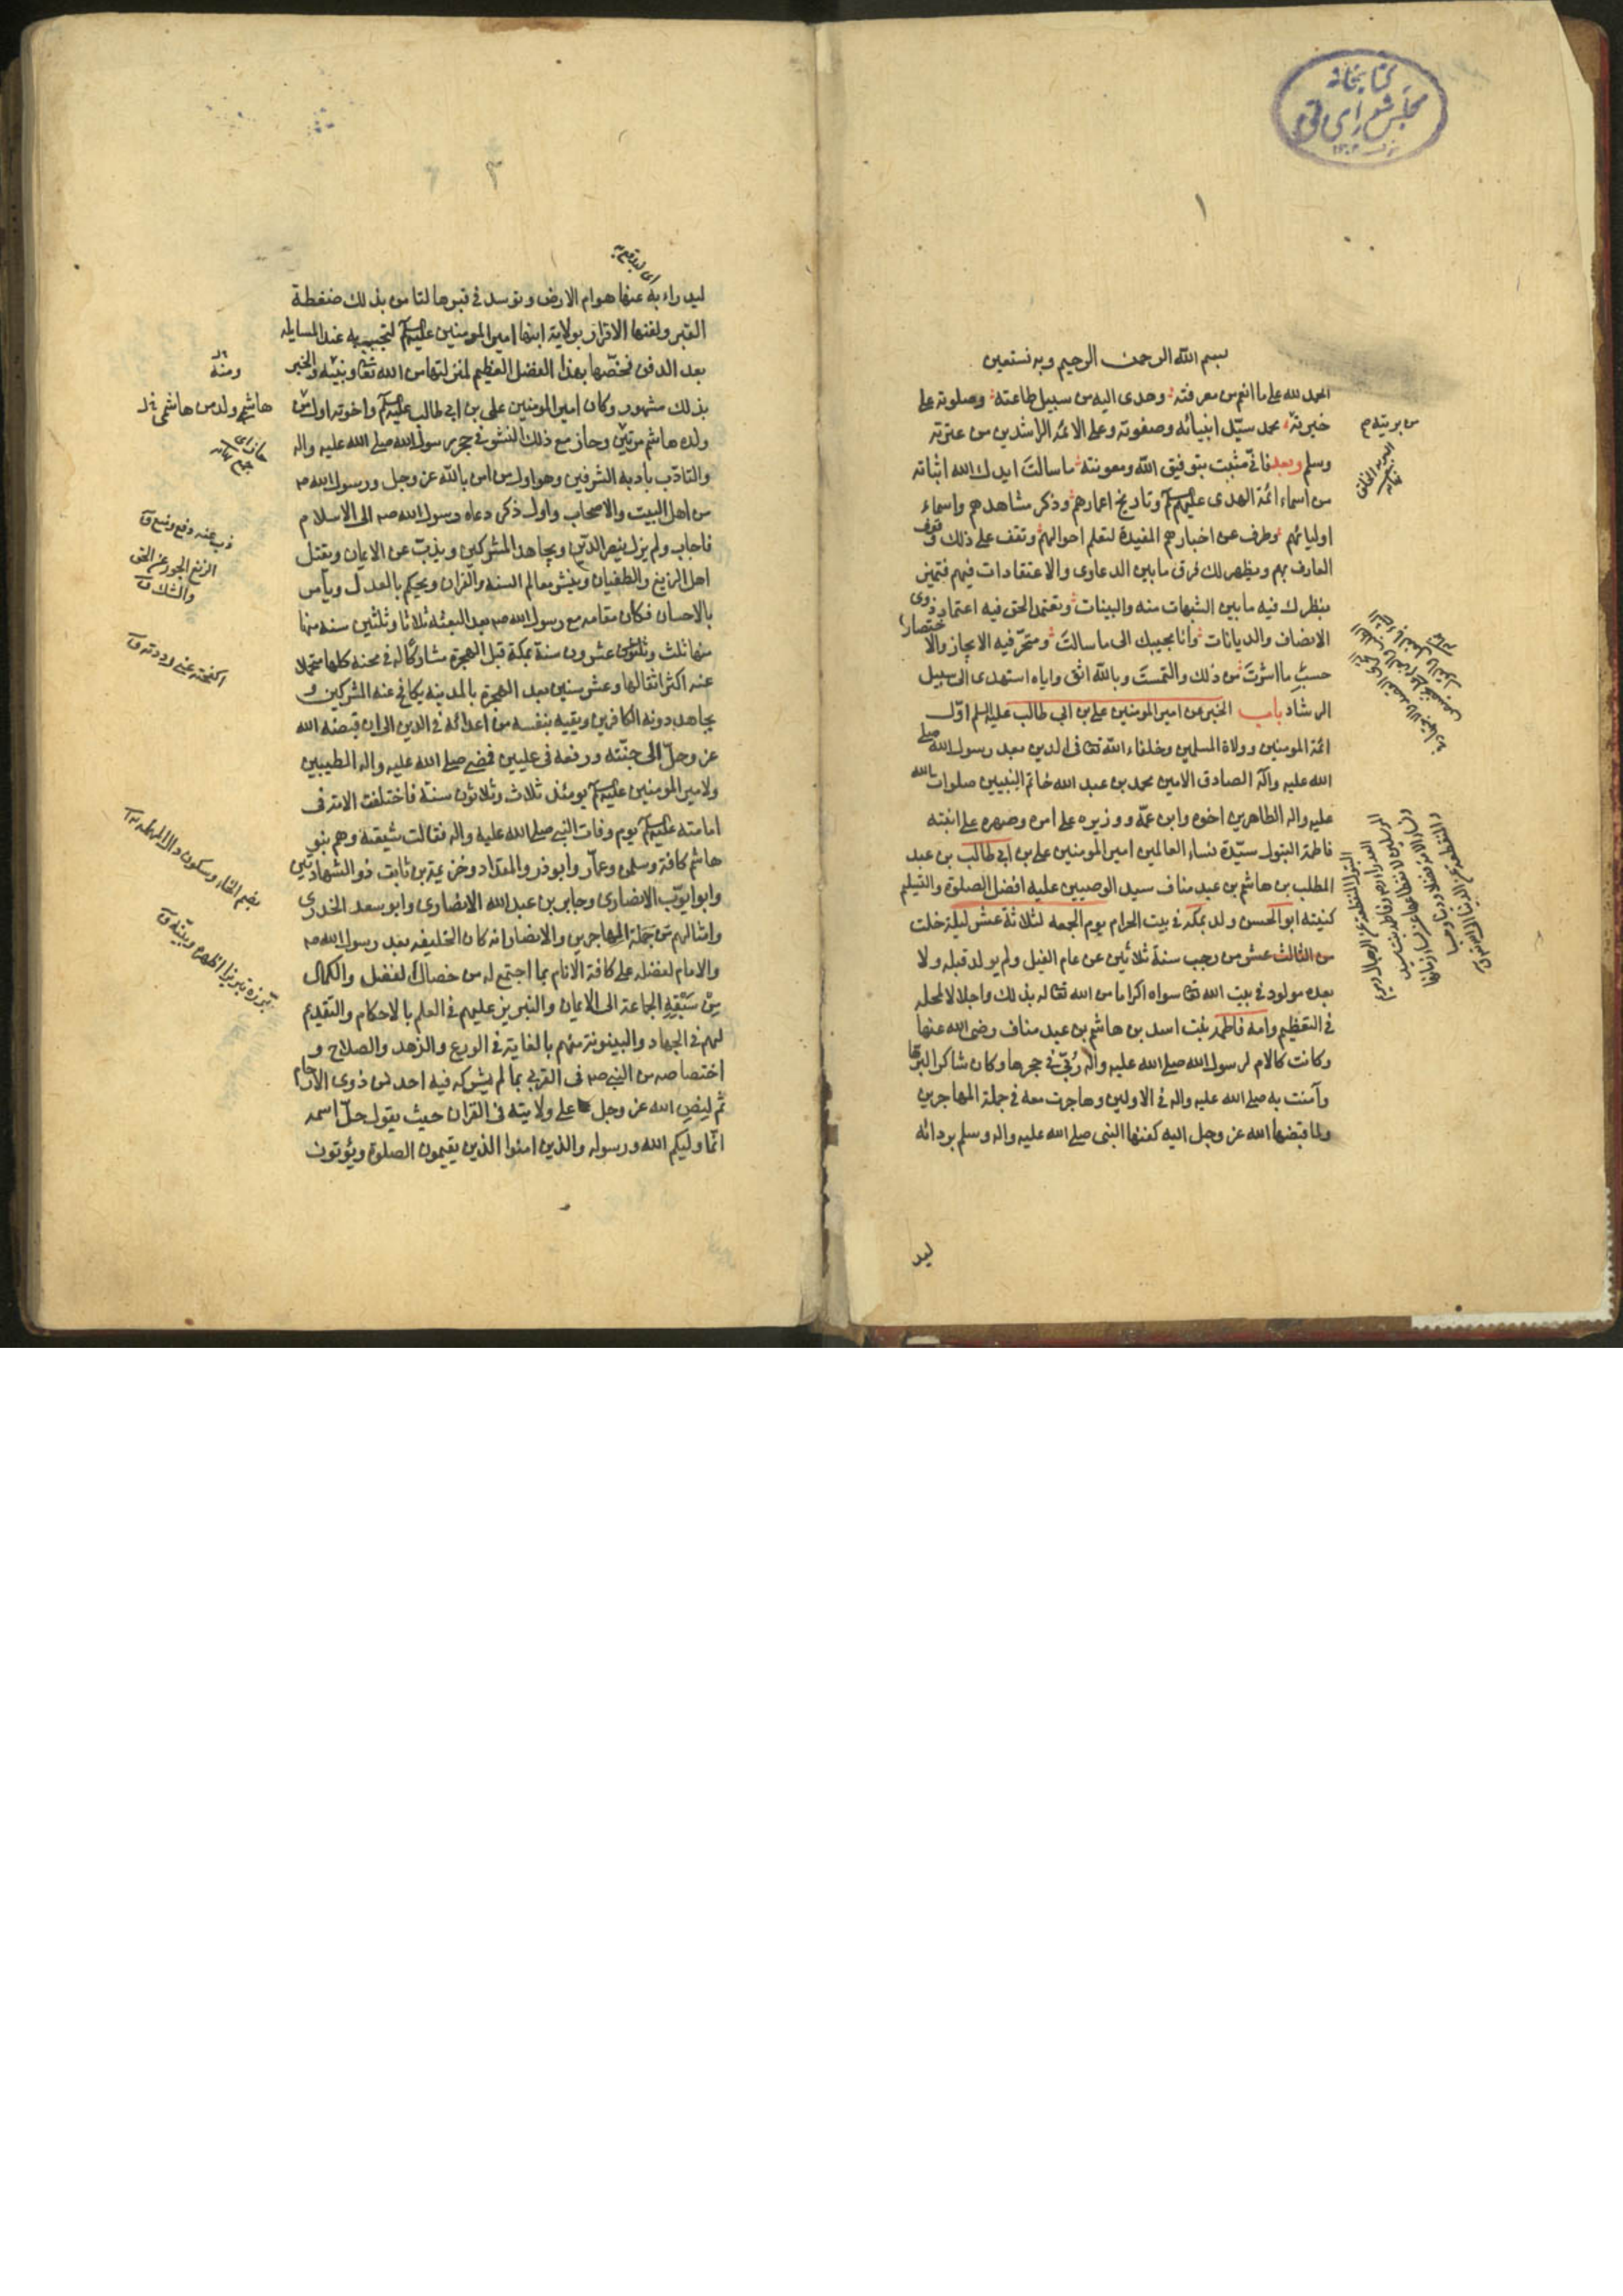 كتابخانه
مجلس شورای ملی
١
بسم الله الرحمن الرحيم وبه نستعين
الحمد لله على ما الهم من معرفته وهدى اليه من سبيل طاعته وصلوته على
خيرته محمد سيد انبيائه وصفوته وعلى الائمه الراشدين من عترته
وسلم وبعد فاني مثبت بتوفيق الله ومعونته ما سالت ايدك الله اثباته
من اسماء ائمة الهدى عليهم وتاريخ اعمارهم وذكر مشاهدهم واسماء
اوليائهم وطرف من اخبارهم المفيدة لتعلم احوالهم وتقف على ذلك وقوف
العارف بهم ويظهر لك فرق ما بين الدعاوى والاعتقادات فيهم فتميز
بنظرك فيه ما بين الشبهات منه والبينات وتعتمد الحق فيه اعتماد ذوى
الانصاف والديانات وانا مجيبك الى ما سالت ومتحر فيه الايجاز والاختصار
حسب ما اثرت من ذلك والتمست وبالله اثق واياه استهدى الى سبيل
الرشاد باب الخبر عن امير المومنين على بن ابي طالب عليه السلم اول
ائمة المومنين وولاة المسلمين وخلفاء الله تعا فى الدين بعد رسول الله صلى
الله عليه وآله الصادق الامين محمد بن عبد الله خاتم النبيين صلوات الله
عليه واله الطاهرين اخوه وابن عمه ووزيره على امره وصهره على ابنته
فاطمة البتول سيدة نساء العالمين امير المومنين على بن ابي طالب بن عبد
المطلب بن هاشم بن عبد مناف سيد الوصيين عليه افضل الصلوة والتسليم
كنيته ابو الحسن ولد بمكه في بيت الحرام يوم الجمعه لثلاثة عشر ليلة خلت
من الثالث عشر من رجب سنة ثلاثين من عام الفيل ولم يولد قبله ولا
بعده مولود في بيت الله تعا سواه اكراما من الله تعا له بذلك واجلالا لمحله
في التعظيم وامه فاطمه بنت اسد بن هاشم بن عبد مناف رضى الله عنها
وكانت كالام لرسول الله صلى الله عليه واله رُبّي في حجرها وكان شاكرا لبرها
وآمنت به صلى الله عليه واله في الاولين وهاجرت معه في جملة المهاجرين
ولما قبضها الله عز وجل اليه كفنها النبى صلى الله عليه واله وسلم بردائه
ليد
من بريته م
٣
ليدراء به عنها هوام الارض وتوسد في قبرها لتامن بذلك ضغطة
القبر ولقنها الاقرار بولاية ابنها امير المومنين عليه لتجيب به عند المسايله
بعد الدفن فخصها بهذا الفضل العظيم لمنزلتها من الله تعا ونبيه والخبر
بذلك مشهور وكان امير المومنين على بن ابي طالب عليه واخوته اول من
ولده هاشم مرتين وحاز مع ذلك النشو في حجر رسول الله صلى الله عليه واله
والتادب بادبه الشرفين وهو اول من امن بالله عز وجل ورسول الله ص
من اهل البيت والاصحاب واول ذكر دعاه رسول الله ص الى الاسلام
فاجاب ولم يزل ينصر الدين ويجاهد المشركين ويذب عن الايمان ويقتل
اهل الزيغ والطغيان وينشر معالم السنه والقران ويحكم بالعدل ويامر
بالاحسان فكان مقامه مع رسول الله ص بعد البعثه ثلاثا وثلثين سنه منها
منها ثلث عشرون سنة بمكة قبل الهجرة مشاركا له في محنه كلها متحملا
عنه اكثر اثقالها وعشر سنين بعد الهجرة بالمدينه يكافح عنه المشركين و
يجاهد دونه الكافرين ويقيه بنفسه من اعدائه في الدين الى ان قبضه الله
عز وجل الى جنته ورفعه فى عليين فمضى صلى الله عليه واله الطيبين
ولامير المومنين عليه يومئذ ثلاث وثلاثون سنة فاختلفت الامة فى
امامته عليه يوم وفات النبي صلى الله عليه واله فقالت شيعته وهم بنو
هاشم كافة وسلمن وعمار وابوذر والمقداد وخزيمة بن ثابت ذو الشهادتين
وابو ايوب الانصارى وجابر بن عبد الله الانصارى وابو سعد الخدرى
وامثالهم من جملة المهاجرين والانصار انه كان الخليفه بعد رسول الله ص
والامام لفضله على كافة الانام بما اجتمع له من خصال الفضل والكمال
من سَبْقِهِ الجماعة الى الايمان والتبريز عليهم في العلم بالاحكام والتقديم
لهم في الجهاد والبينونة منهم بالغاية في الورع والزهد والصلاح و
اختصاصه من النبي ص فى القربى بما لم يشركه فيه احد من ذوى الارحام
ثم لنص الله عز وجل على ولايته فى القران حيث يقول جل اسمه
انما وليكم الله ورسوله والذين امنوا الذين يقيمون الصلوة ويؤتون
هاشم ولد من هاشمي
ذب عنه دفع ومنع ق
الزيغ الجور عن الحق
اكفحته عني رددته ق
بضم الخاء وسكون دال المهمله